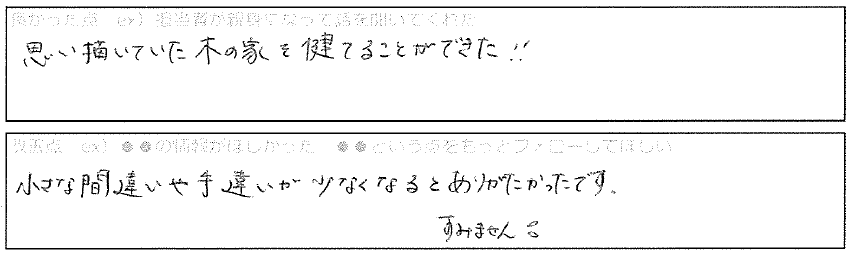 良かった点 ex）担当者が親身になって話を聞いてくれた
思い描いていた木の家を健てることができた!!
改善点 ex）●●の情報がほしかった ●●という点をもっとフォローしてほしい
小さな間違いや手違いが少なくなるとありがたかったです。
すみません